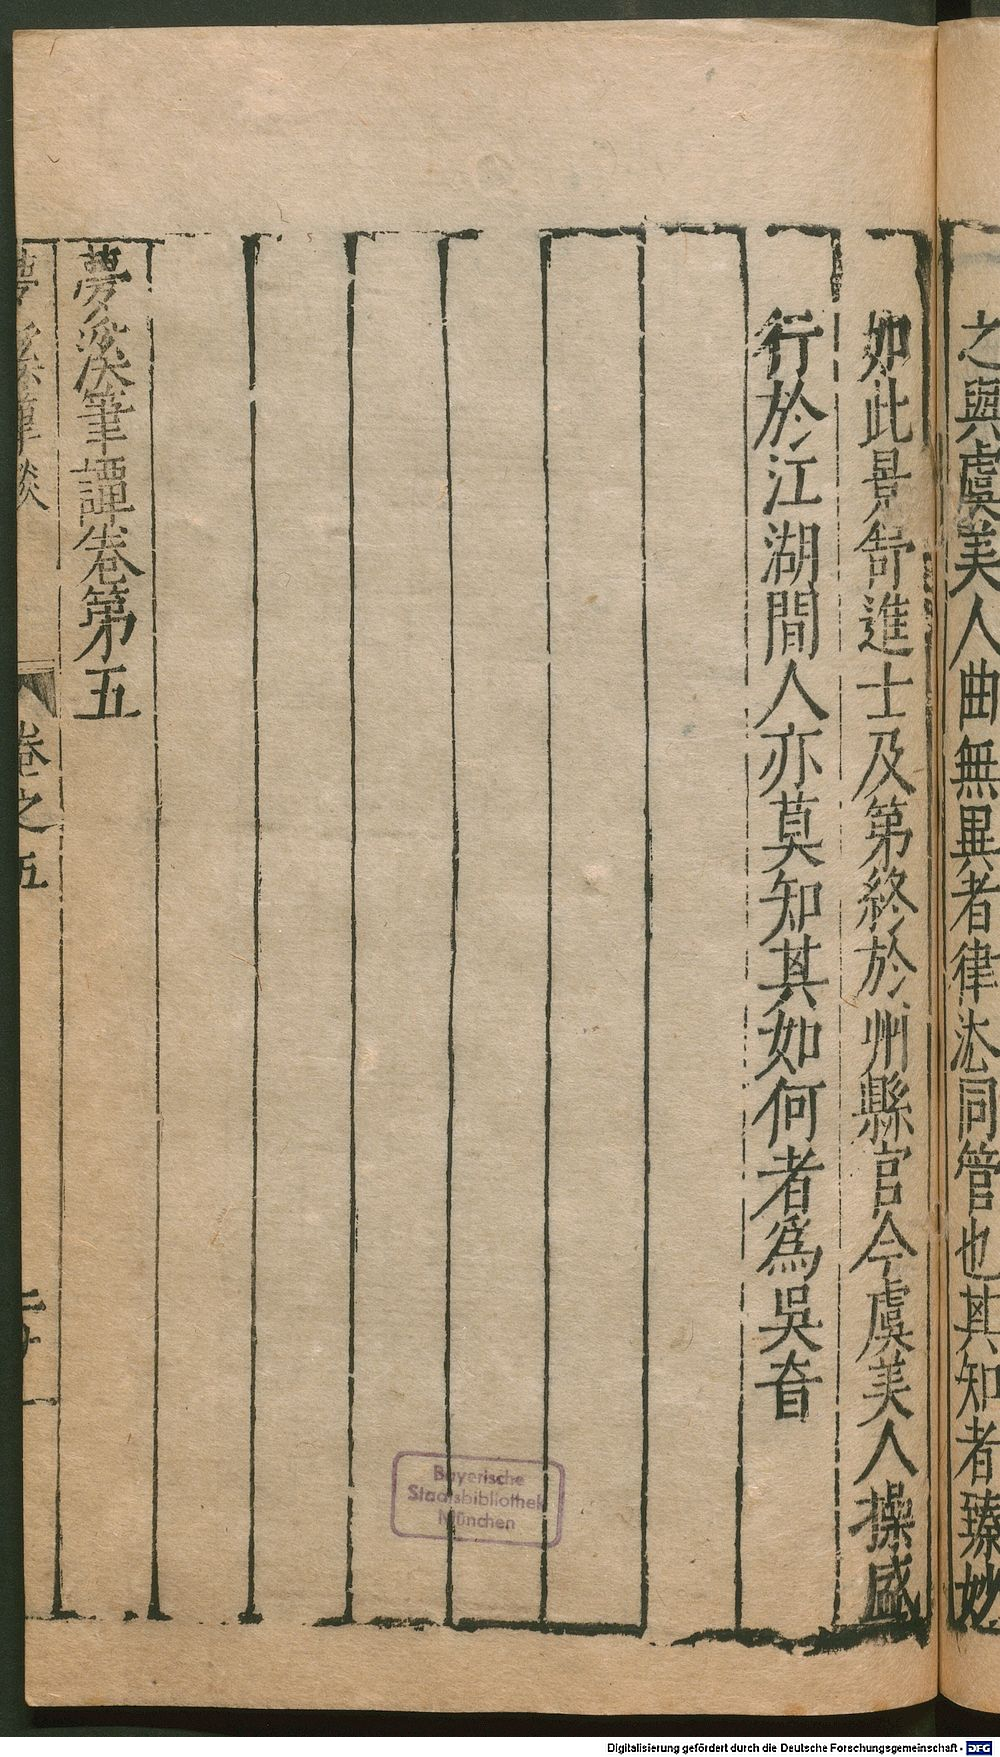 之與虞美人曲無異者律法同管也其知者臻妙
如此景舒進士及第終於州縣官今虞美人操盛
行於江湖間人亦莫知其如何者爲吳音
夢溪筆譚卷第五
夢溪筆談 卷之五
Bayerische
Staatsbibliothek
München
Digitalisierung gefördert durch die Deutsche Forschungsgemeinschaft - DFG